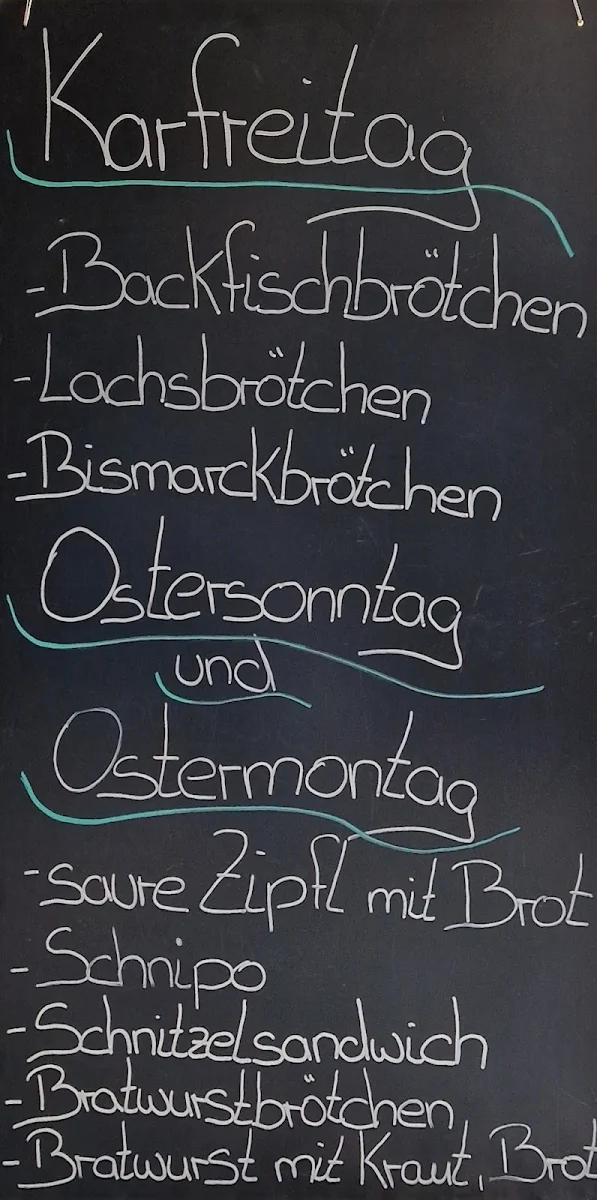 Karfreitag
-Backfischbrötchen
-Lachsbrötchen
-Bismarckbrötchen
Ostersonntag
und
Ostermontag
-saure Zipfl mit Brot
-Schnipo
-Schnitzelsandwich
-Bratwurstbrötchen
-Bratwurst mit Kraut, Brot